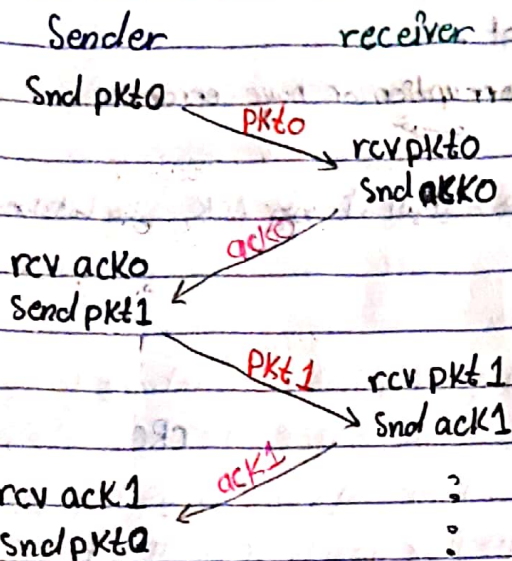 Sender receiver
Snd pkt0
pkt0
rcv pkt0
Snd ack0
ack0
rcv ack0
Send pkt1
pkt1
rcv pkt1
Snd ack1
ack1
rcv ack1
Snd pkt0